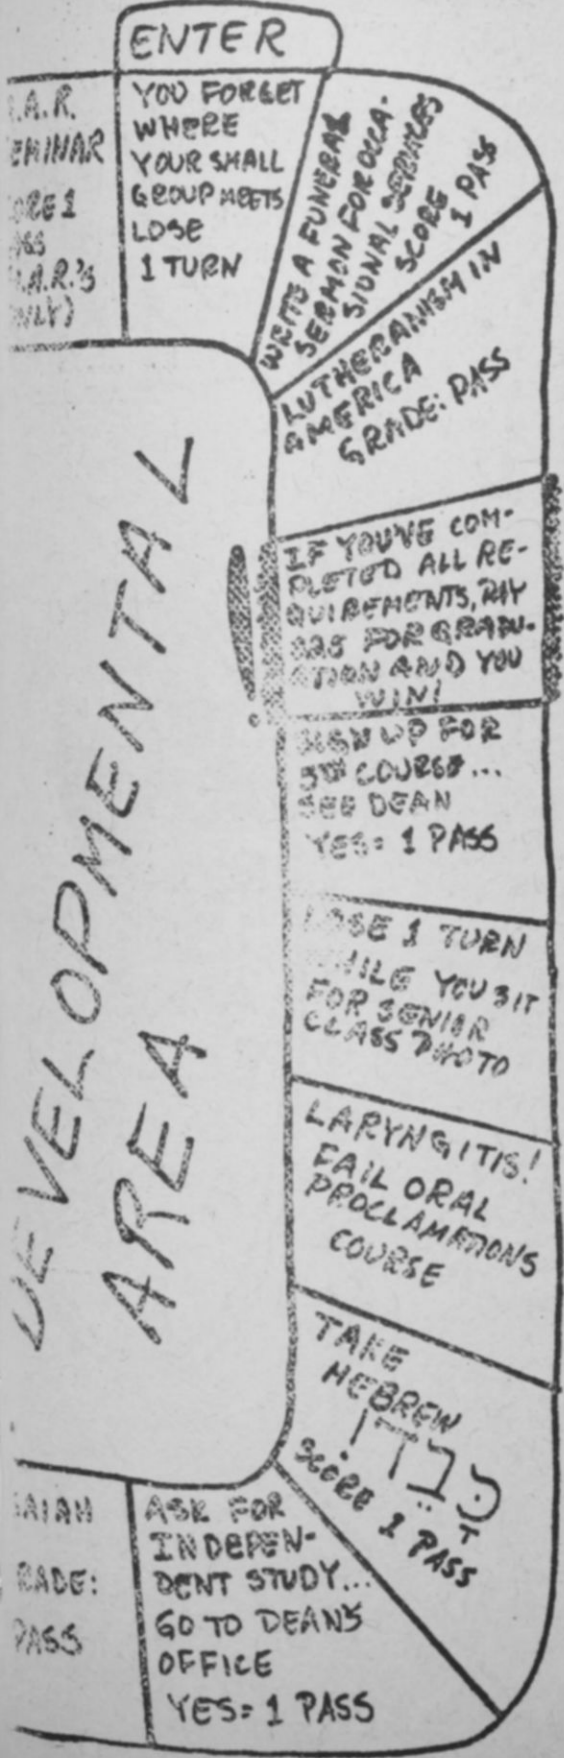 ENTER
.A.R.
EMINAR
ORE 1
ASS
.A.R.'S
NLY)
YOU FORGET
WHERE
YOUR SMALL
GROUP MEETS
LOSE
1 TURN
WRITE A FUNERAL
SERMON FOR OCCA-
SIONAL SERVICES
SCORE 1 PASS
LUTHERANISM IN
AMERICA
GRADE: PASS
IF YOU'VE COM-
PLETED ALL RE-
QUIREMENTS, PAY
$25 FOR GRADU-
ATION AND YOU
WIN!
SIGN UP FOR
5TH COURSE...
SEE DEAN
YES= 1 PASS
LOSE 1 TURN
WHILE YOU SIT
FOR SENIOR
CLASS PHOTO
LARYNGITIS!
FAIL ORAL
PROCLAMATIONS
COURSE
TAKE
HEBREW
כָּבֵד!
SCORE 1 PASS
ASK FOR
INDEPEN-
DENT STUDY...
GO TO DEAN'S
OFFICE
YES= 1 PASS
AIAH
RADE:
PASS
DEVELOPMENTAL
AREA